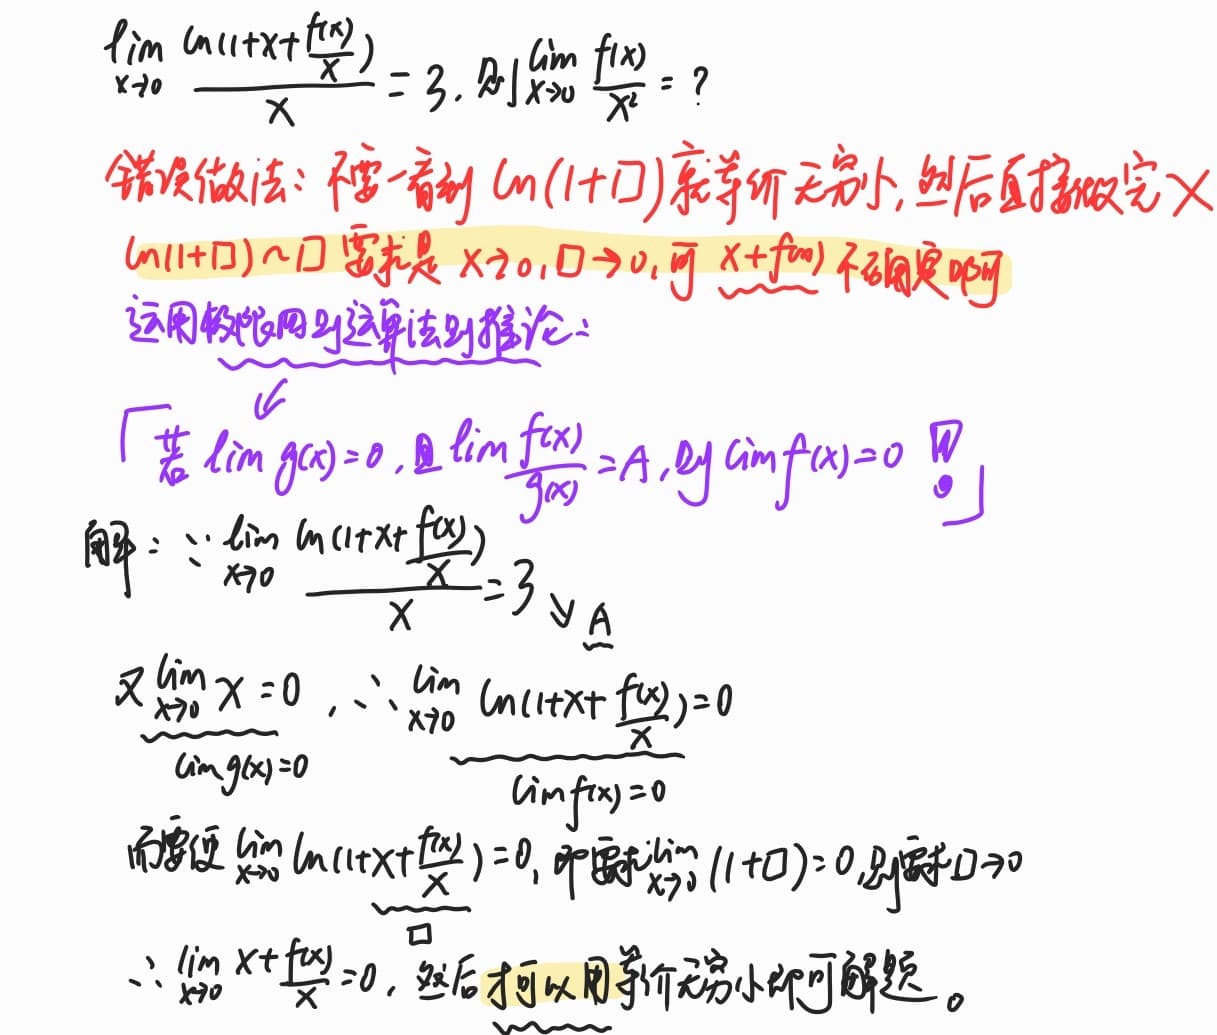 lim_{x→0} ln(1+x+f(x)/x)/x = 3. 则 lim_{x→0} f(x)/x² = ?
错误做法: 不要一看到 ln(1+□) 就等价无穷小, 然后直接做完 ×
ln(1+□)~□ 要求是 x→0, □→0, 可 x+f(x) 不确定啊可
运用极限四则运算法则推论:
「若 lim g(x)=0, 且 lim f(x)/g(x) = A, 则 lim f(x)=0 !」
解: ∵ lim_{x→0} ln(1+x+f(x)/x)/x = 3 ↘ A
又 lim_{x→0} x = 0, ∴ lim_{x→0} ln(1+x+f(x)/x) = 0
lim g(x)=0 lim f(x)=0
而要使 lim_{x→0} ln(1+x+f(x)/x) = 0, 即要求 lim_{x→0} (1+□)=0, 则要求 □→0
□
∴ lim_{x→0} x+f(x)/x = 0, 然后才可以用等价无穷小即可解题。